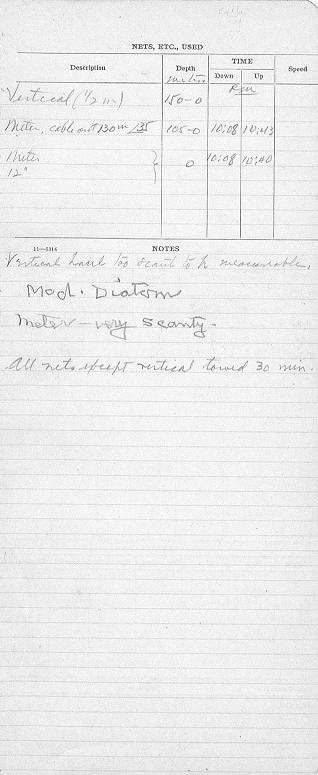 NETS, ETC., USED
Description Depth TIME Speed
meters Down Up
P.m.
Vertical (1/2 m) 150-0
Meter, cable out 130 m 105-0 10:08 10:43
Meter } 0 10:08 10:40
12"
11—5316 NOTES
Vertical haul too scant to be measurable.
Mod. Diatom
Meter - very scanty.
All nets except vertical towed 30 min.